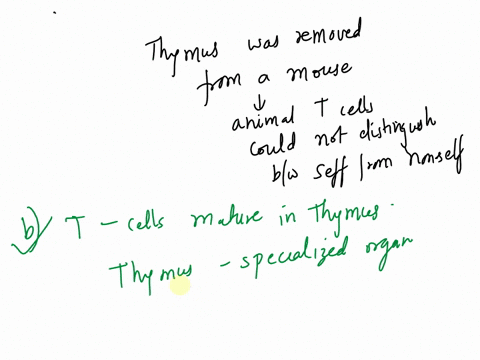 Thymus was removed
from a mouse
↓
animal T cells
could not distingush
b/w seff from nonself
b) T - cells mature in Thymus.
Thymus - specialized organ